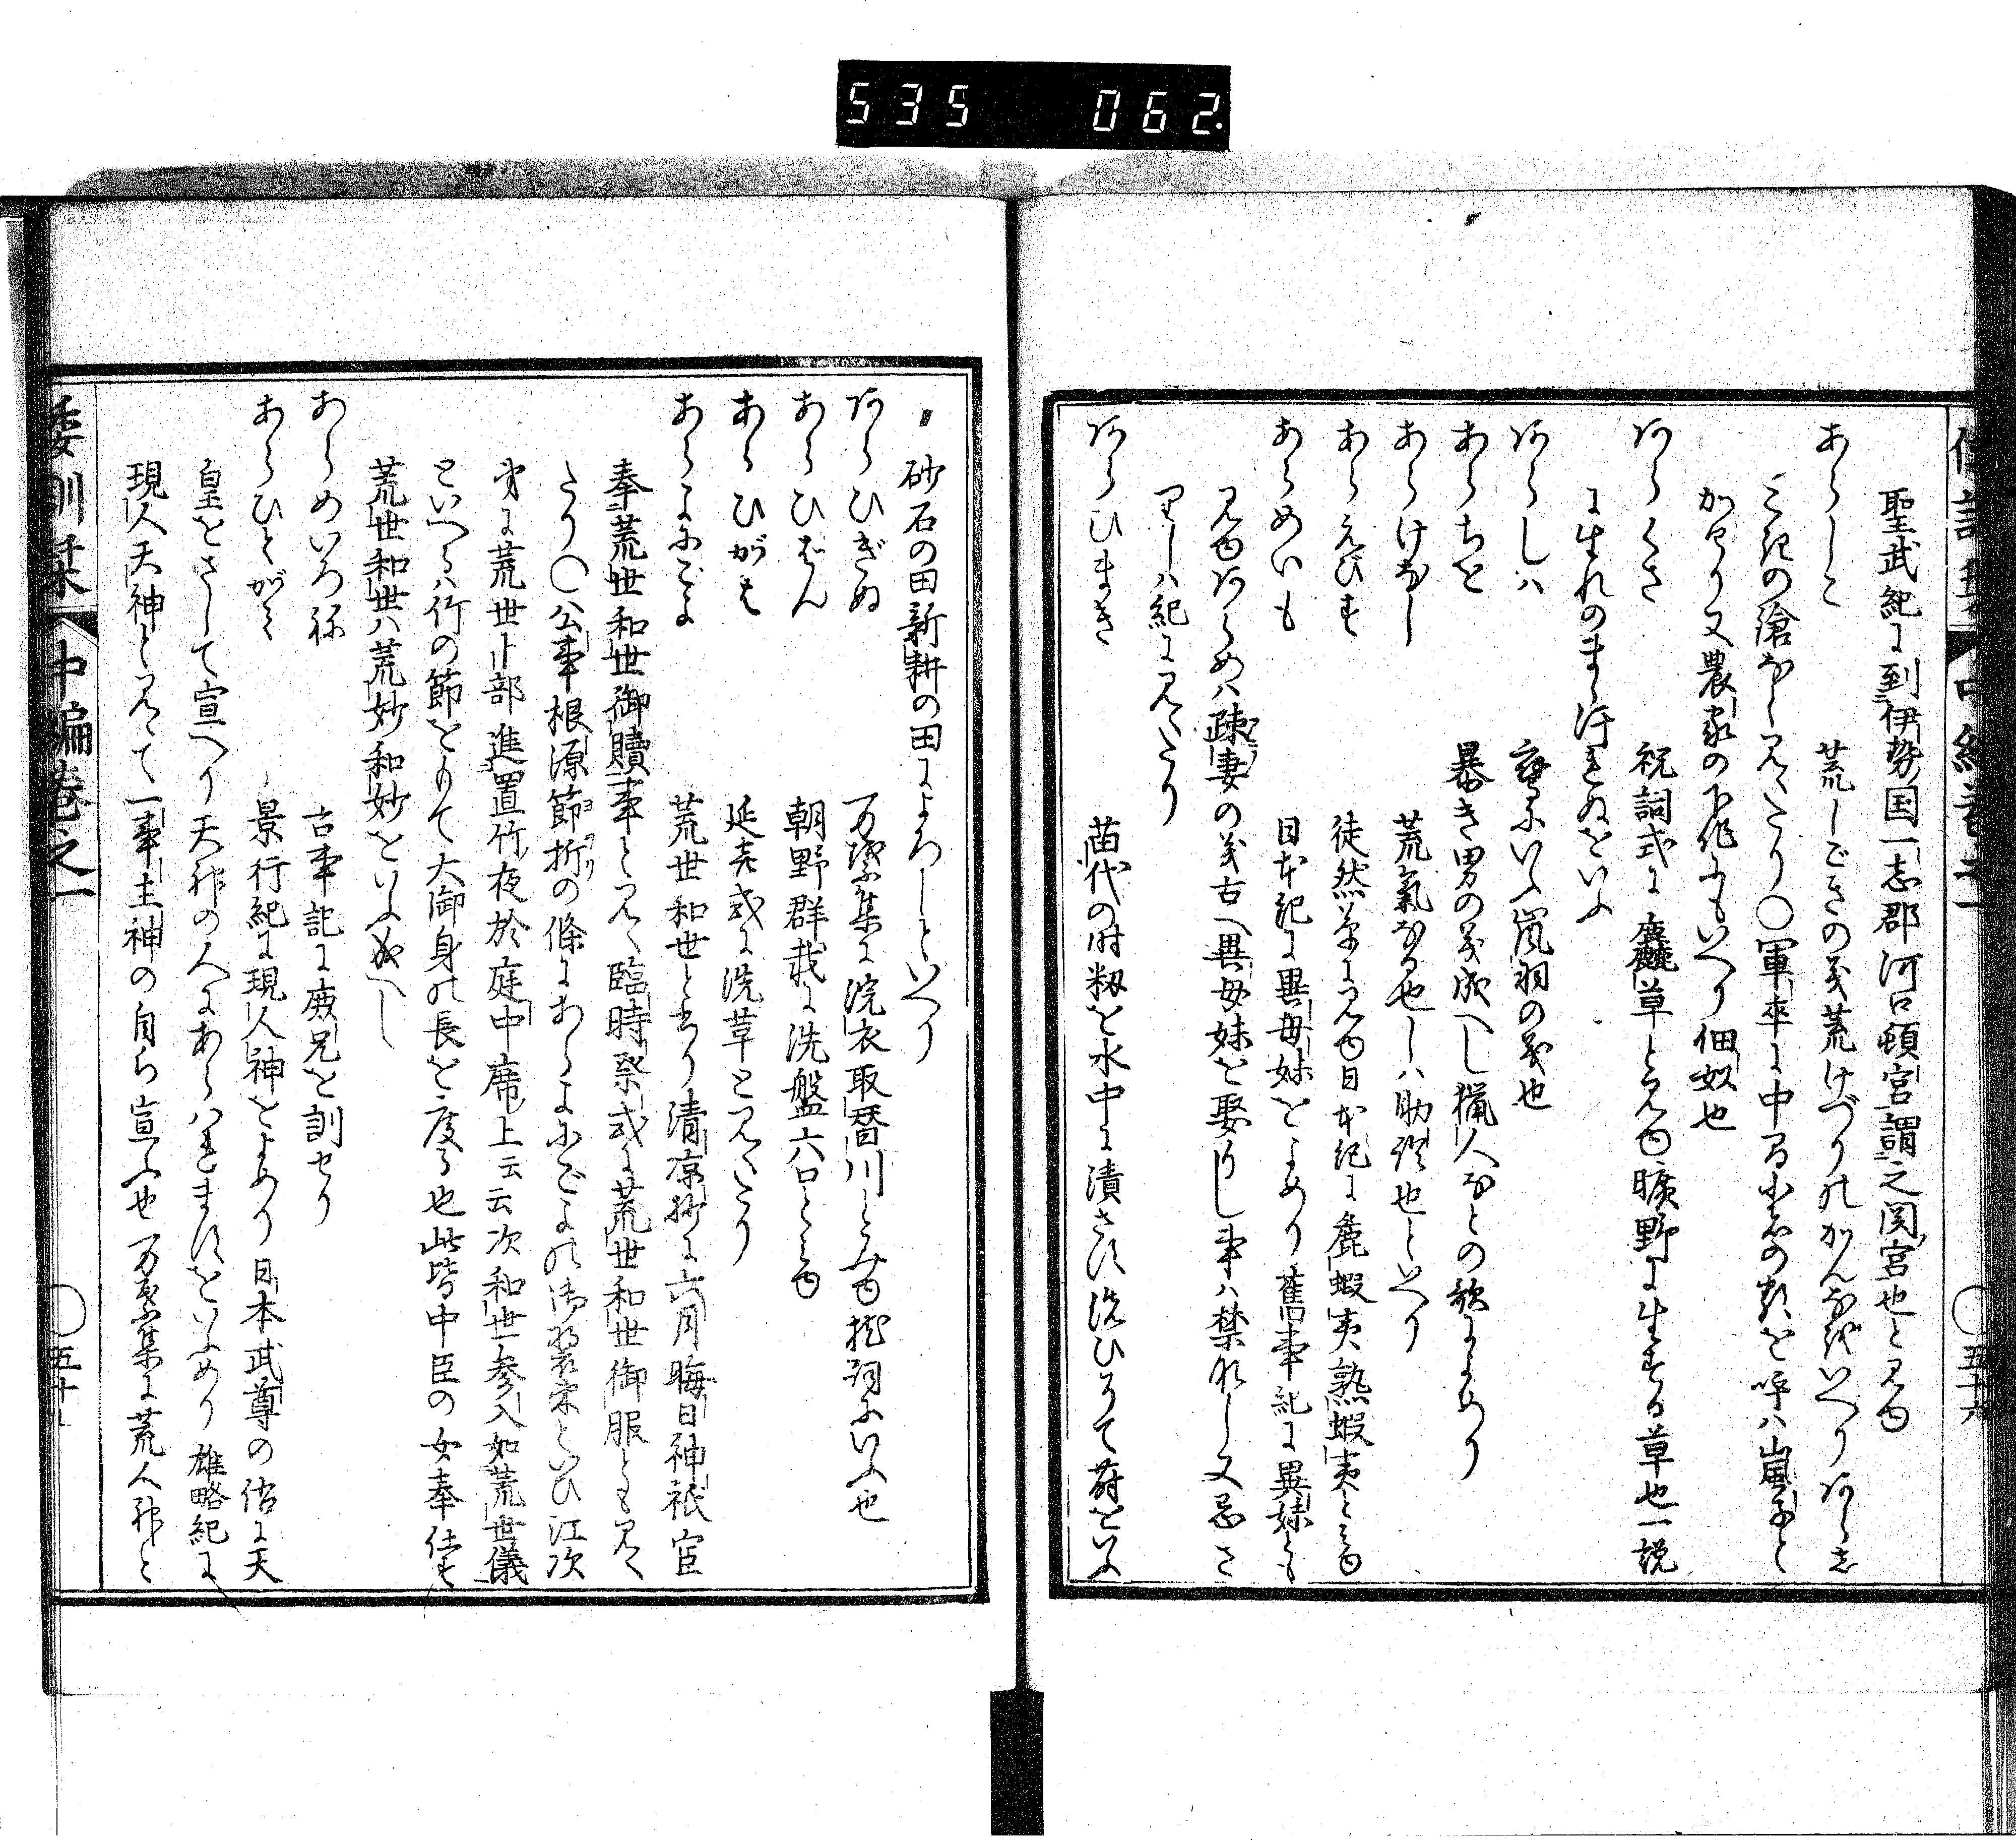 535 062.
聖武紀に到伊勢国一志郡河口頓宮謂之関宮也と見ゆ
あらしこ 荒しごきの義荒けづりのかんなをいへり あらし
こ紀の滄なと見えたり○軍卒に中る小者の類を呼ハ嵐子と
かけり又農家の下作にもいへり佃奴也
あらくさ 祝詞式に麤草と見ゆ曠野に生する草也一説
に生れのまゝ汗せぬをいふ
あらしハ 鷹にいふ嵐羽の義也
あらちを 暴き男の義成へし猟人なとの歌によめり
あらけなし 荒氣なる也しハ助語也といへり
あらえびす 徒然草に見ゆ日本紀に麁蝦夷熟蝦夷とみゆ
あらめいも 日本紀に異母妹をよめり舊事紀に異妹とも
見ゆあらめハ疎妻の義古へ異母妹を娶りし事ハ禁れし又忌さ
りしハ紀に見えたり
あらひまき 苗代の時籾を水中に漬さす洗ひて蒔をいふ
砂石の田新耕の田によろしといへり
あらひぎぬ 万葉集に浣衣取替川とみゆ枕詞にいふ也
あらひばん 朝野群載に洗盤六口とみゆ
あらひがは 延喜式に洗革と見えたり
あらよにごよ 荒世和世と書り清凉抄に六月晦日神祇官
奉荒世和世御贖事と見え臨時祭式に荒世和世御服とも見え
たり○公事根源節折の條にあらよにごよの御装束といひ江次
第に荒世卜部進置竹夜於庭中席上云云次和世参入如荒世儀
といへるハ竹の節をもて大御身の長を度る也此皆中臣の女奉仕す
荒世和世ハ荒妙和妙をいふ成へし
あらめいろね 古事記に庶兄を訓せり
あらひとがミ 景行紀に現人神とよめり日本武尊の條に天
皇をさして宣へり天神の人にあらハれますをいふめり雄略紀に
現人天神と見えて一事主神の自ら宣ふ也万葉集に荒人神と
倭訓栞 中編巻之一 ○五十